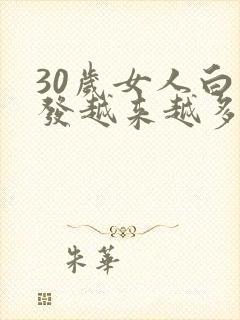 30歲女人白
發越來越多
朱華